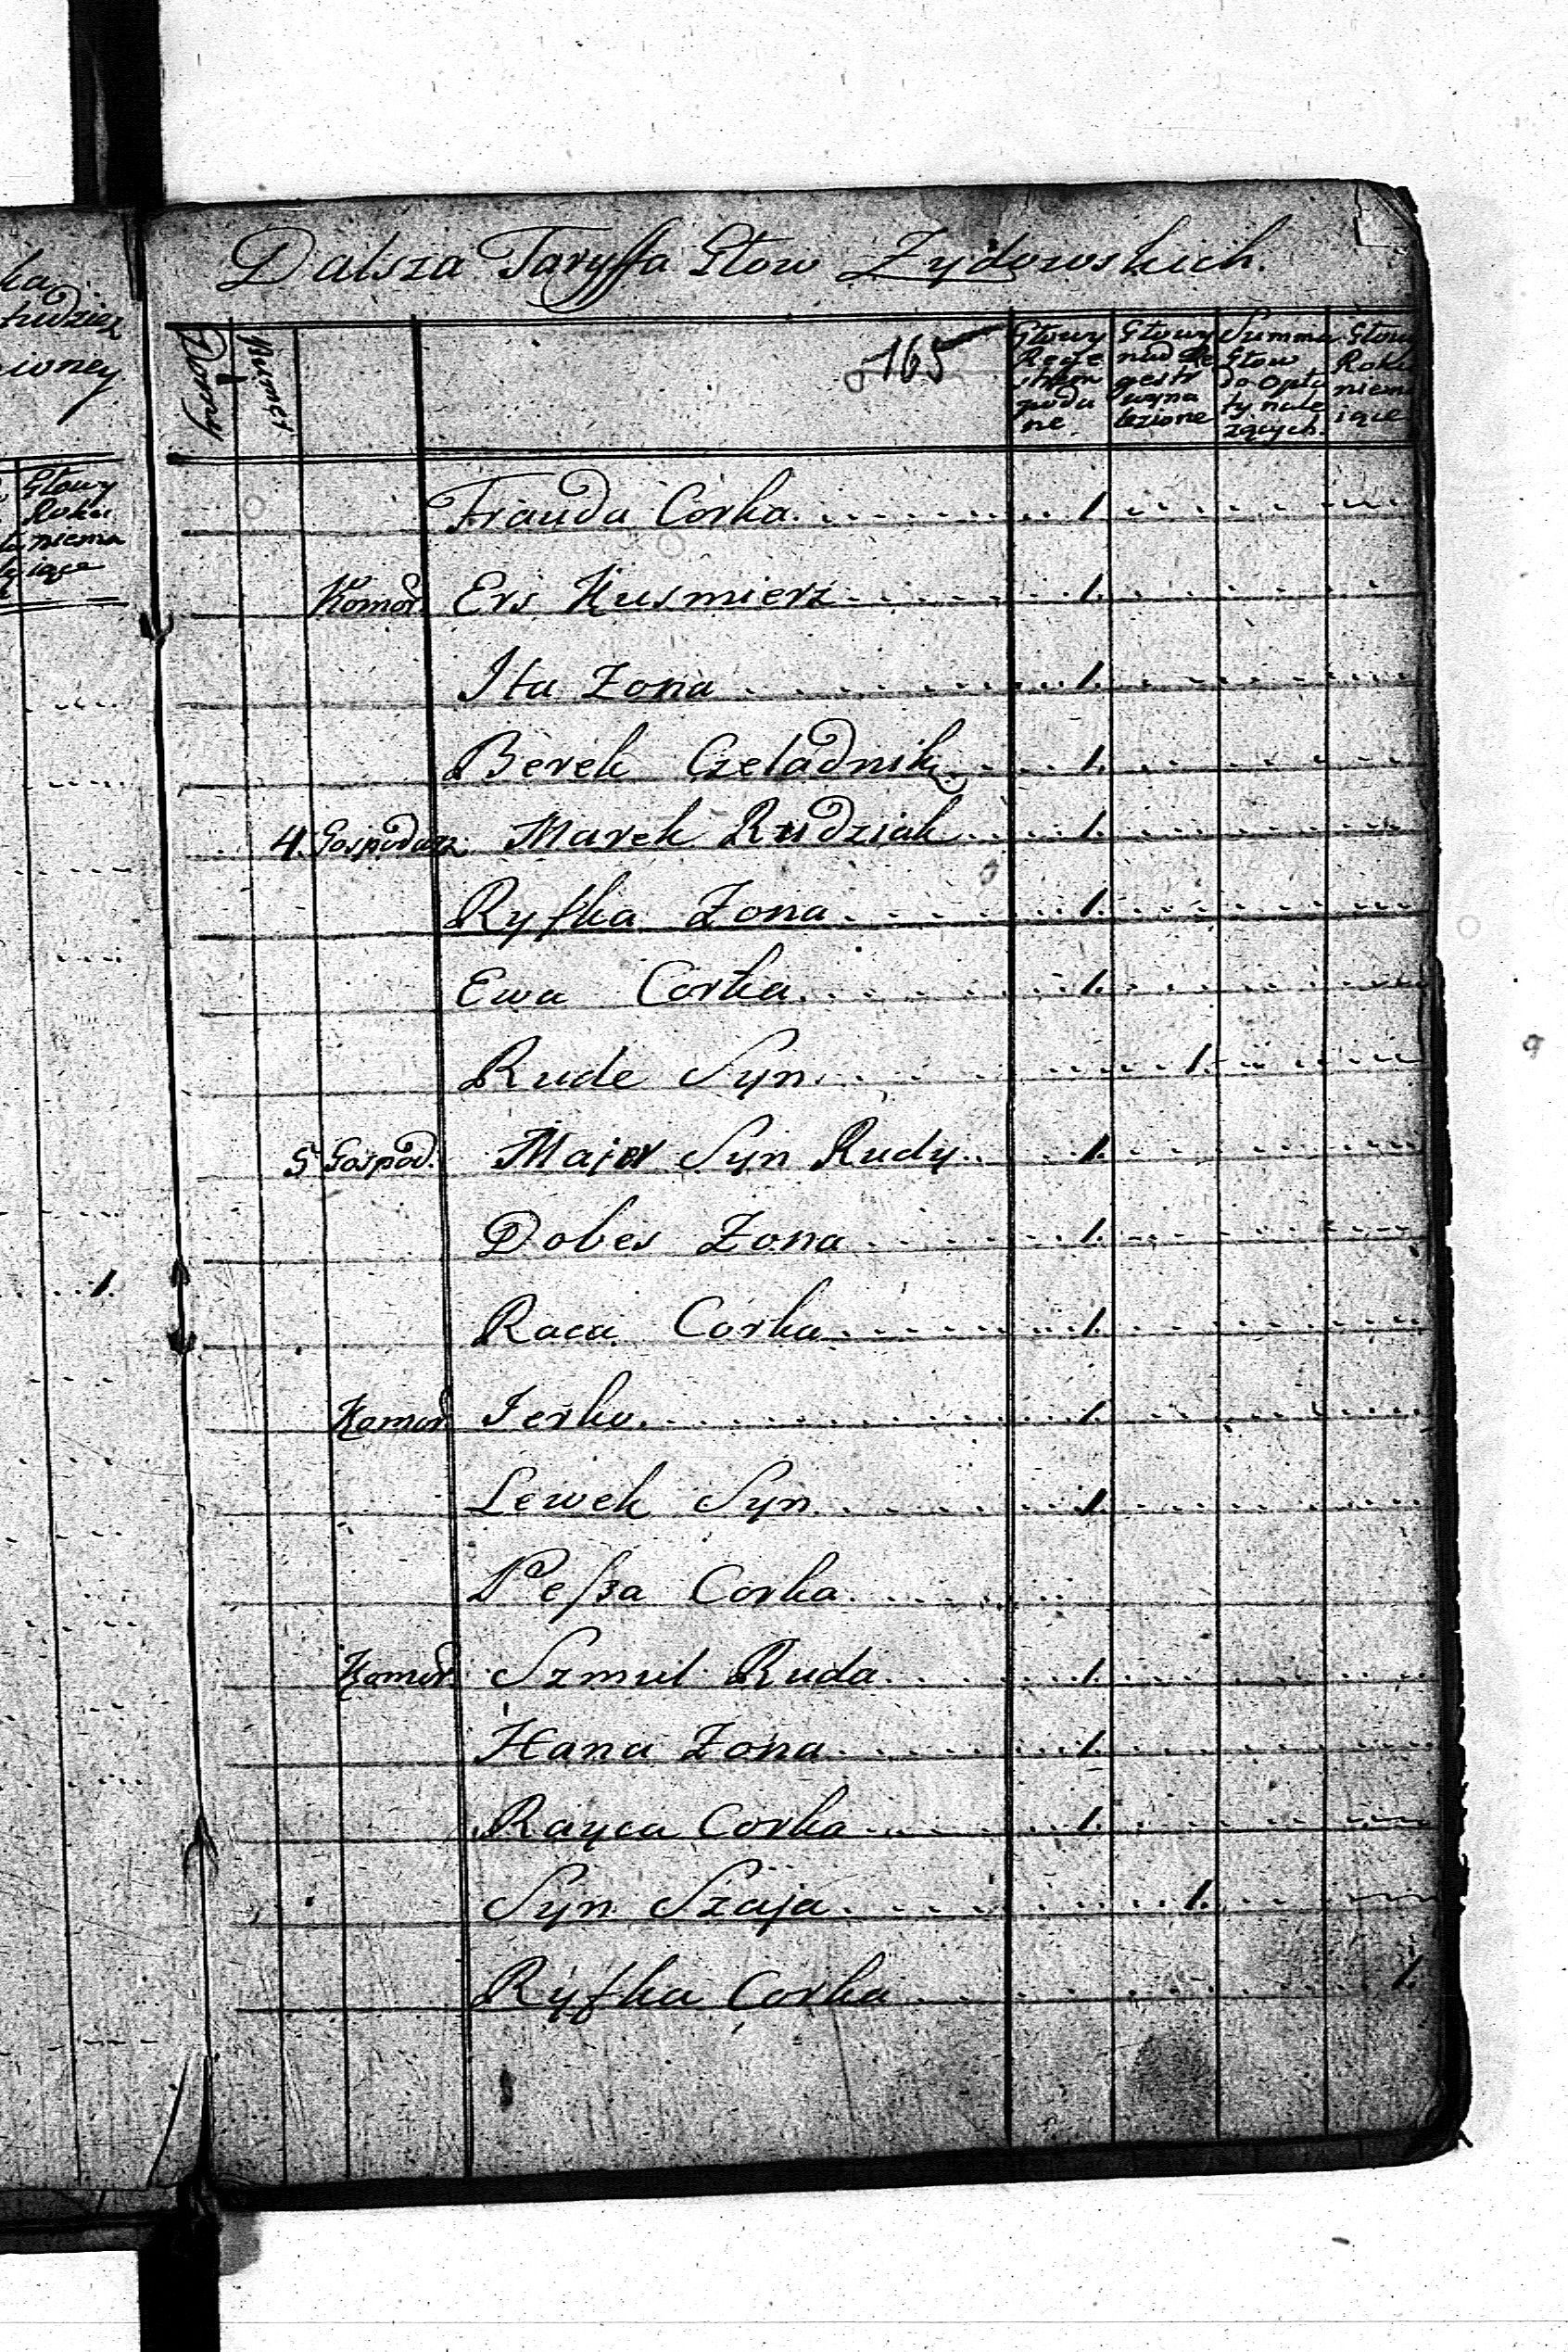 ka
tudziez
ioney
Głowy
Roku
niema
iące
1.
Dalsza Taryffa Głow Zydowskich.
165
Domy
Numer
Głowy Rege strem poda ne.
Głowy nad Re gestr wyna lezione
Summa Głow do Opła ty nale zących.
Głowy Roku niema iące
Frauda Corka 1.
Komor. Ers Kusmierz 1.
Ita Zona 1.
Berek Czeladnik 1.
4. Gospodarz. Marek Rudziak 1.
Ryfka Zona 1.
Ewa Corka 1.
Rude Syn 1.
5 Gospod. Majer Syn Rudy 1.
Dobes Zona 1.
Raca Corka 1.
Komor. Jerko 1.
Lewek Syn 1.
Peſza Corka
Komor. Szmul Ruda 1.
Hana Zona 1.
Rayca Corka 1.
Syn Szaja 1.
Ryfka Corka 1.